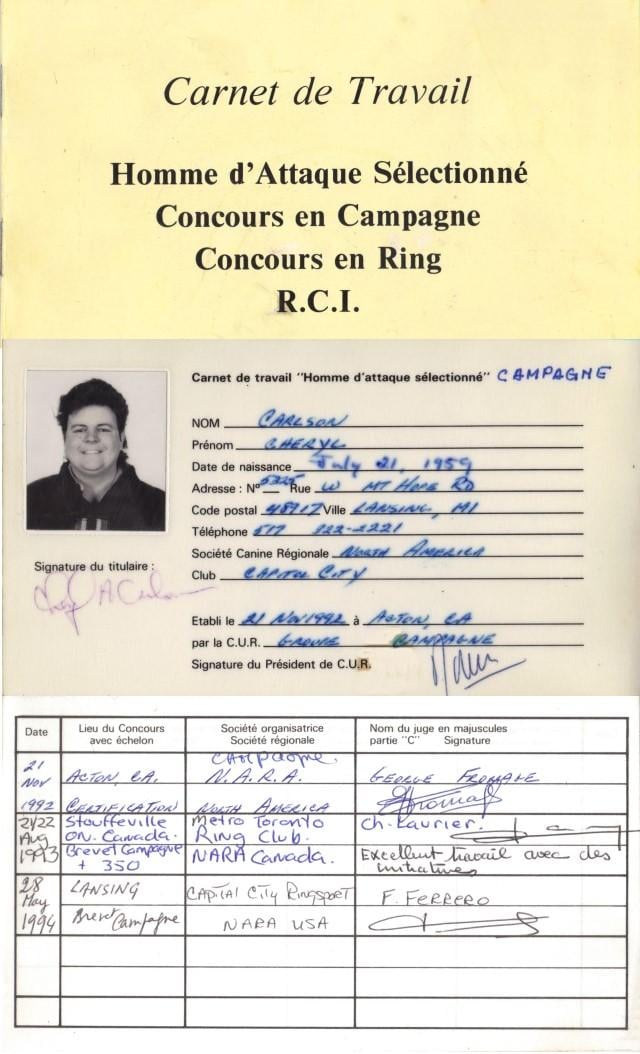 Carnet de Travail
Homme d'Attaque Sélectionné
Concours en Campagne
Concours en Ring
R.C.I.
Carnet de travail "Homme d'attaque sélectionné" CAMPAGNE
NOM CARLSON
Prénom CHERYL
Date de naissance July 21, 1959
Adresse : N° 5325 Rue W MT HOPE RD
Code postal 48917 Ville LANSING, MI
Téléphone 517 322-2221
Société Canine Régionale NORTH AMERICA
Club CAPITOL CITY
Signature du titulaire :
Etabli le 21 NOV 1992 à ACTON, CA
par la C.U.R. GROUPE CAMPAGNE
Signature du Président de C.U.R.
Date Lieu du Concours avec échelon Société organisatrice Société régionale Nom du juge en majuscules partie "C" Signature
campagne.
21 NOV ACTON, CA. N.A.R.A. GEORGE FROMAGE
1992 CERTIFICATION NORTH AMERICA
21/22 Stouffeville Metro Toronto Ch. Laurier.
Aug ON. Canada. Ring Club.
1993 Brevet Campagne NARA Canada. Excellent travail avec des
+ 350 initiatives
28 May LANSING CAPITAL CITY RINGSPORT F. FERRERO
1994 Brevet Campagne NARA USA